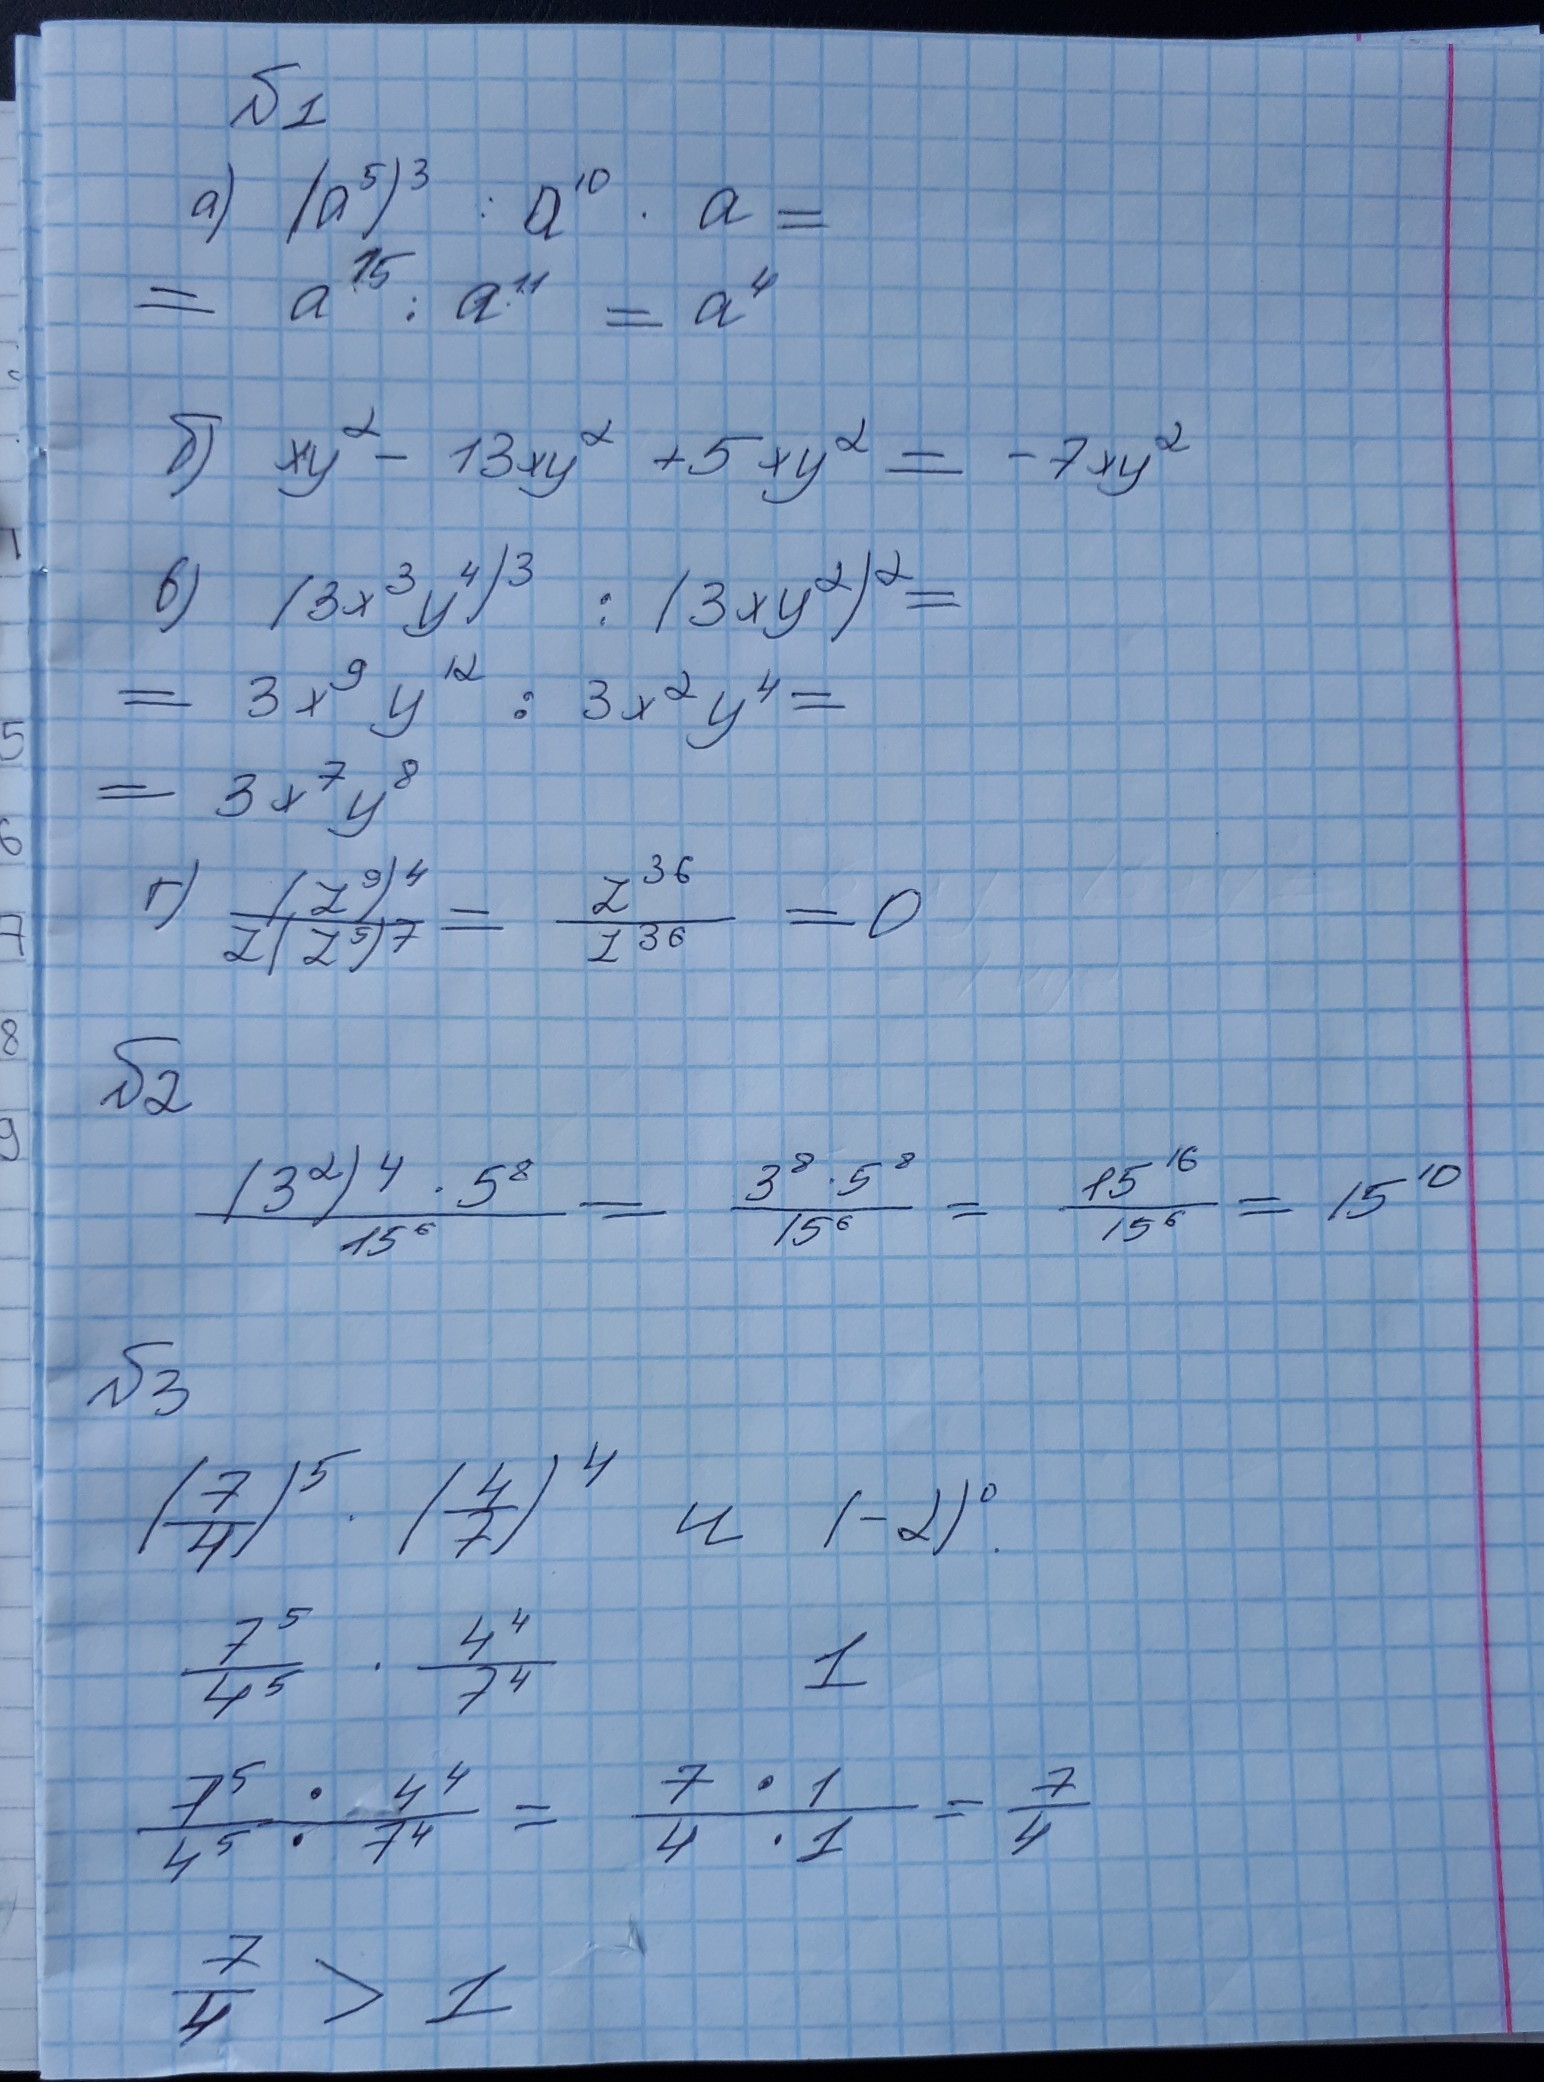 №1
а) (a⁵)³ : a¹⁰ · a =
= a¹⁵ : a¹¹ = a⁴
б) xy² - 13xy² + 5xy² = -7xy²
в) (3x³y⁴)³ : (3xy²)² =
= 3x⁹y¹² : 3x²y⁴ =
= 3x⁷y⁸
г) (z⁹)⁴/z(z⁵)⁷ = z³⁶/z³⁶ = 0
№2
(3²)⁴ · 5⁸/15⁶ = 3⁸ · 5⁸/15⁶ = 15¹⁶/15⁶ = 15¹⁰
№3
(7/4)⁵ · (4/7)⁴ и (-2)⁰.
7⁵/4⁵ · 4⁴/7⁴ 1
7⁵ · 4⁴/4⁵ · 7⁴ = 7 · 1/4 · 1 = 7/4
7/4 > 1
5
6
7
8
9